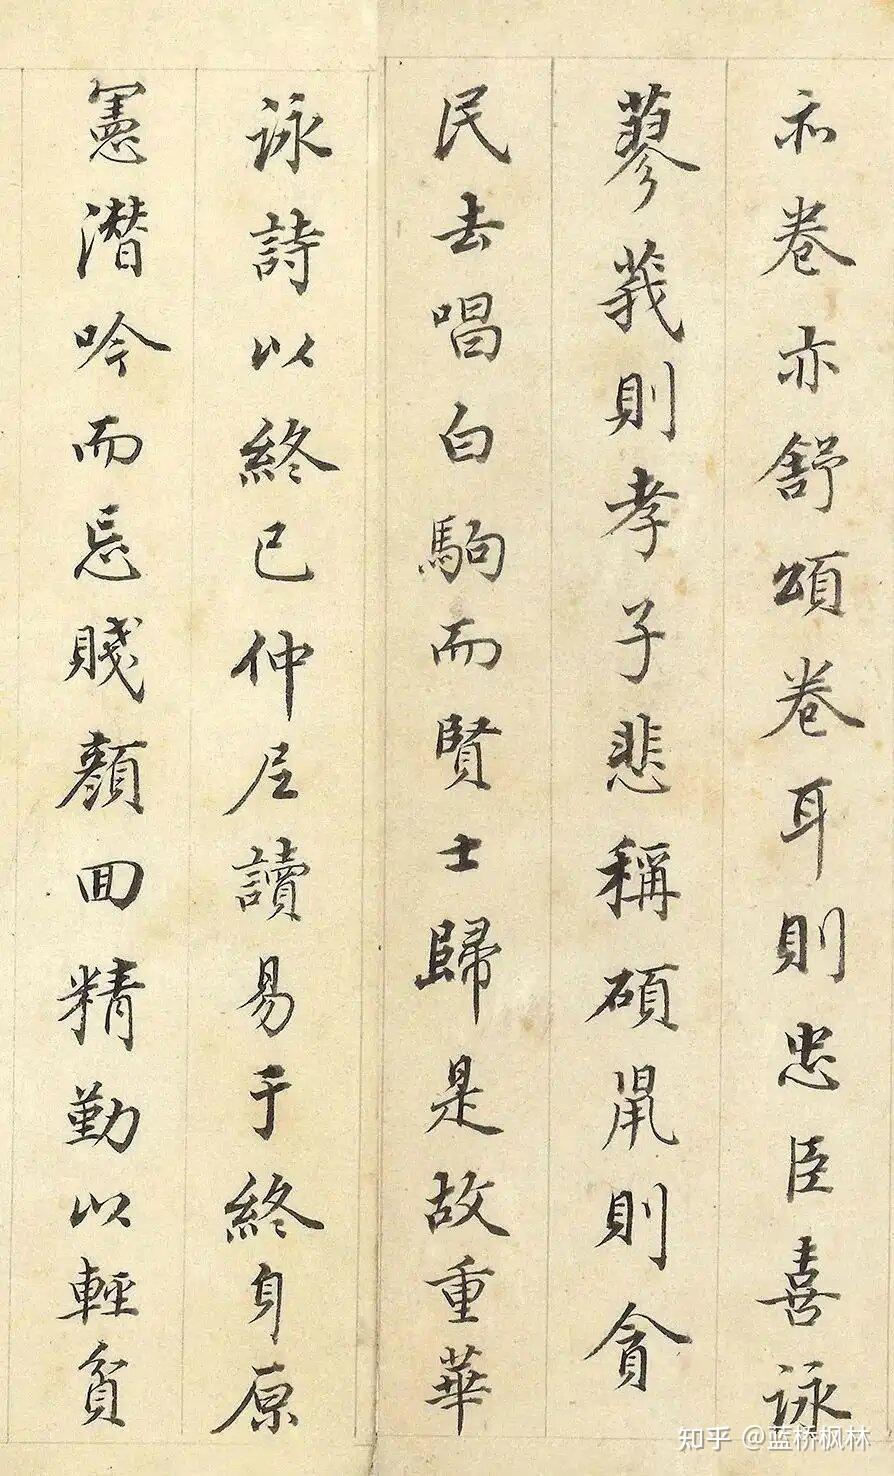 亦卷亦舒頌卷耳則忠臣喜詠
蓼莪則孝子悲稱碩鼠則貪
民去唱白駒而賢士歸是故重華
詠詩以終己仲尼讀易于終身原
憲潛吟而忘賤顏回精勤以輕貧
知乎 @蓝桥枫林